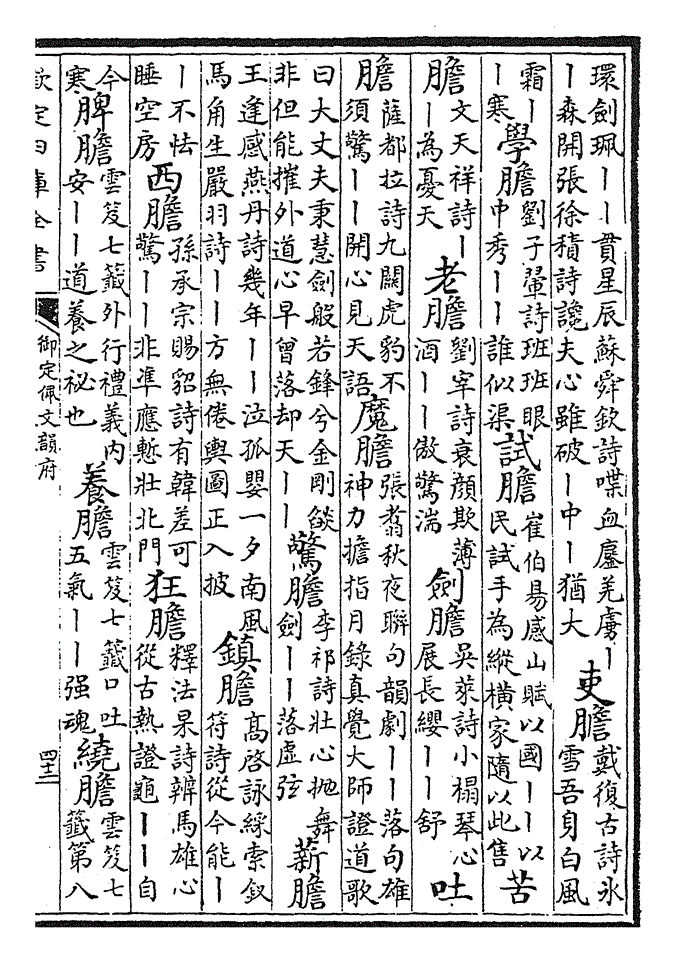 環劍珮｜｜貫星辰蘇舜欽詩喋血鏖羌虜｜｜森開張徐積詩讒夫心雖破｜中｜猶大吏膽戴復古詩氷雪吾身白風
霜｜｜寒學膽劉子翬詩班班眼中秀｜｜誰似渠試膽崔伯易感山賦以國｜｜以民試手為縱橫家隨以此售苦
膽文天祥詩｜｜為憂天老膽劉宰詩衰顔欺薄酒｜｜傲驚湍劍膽吳萊詩小榻琴心展長纓｜｜舒吐
膽薩都拉詩九闗虎豹不須驚｜｜開心見天語魔膽張翥秋夜聯句韻劇｜｜落句雄神力擔指月錄真覺大師證道歌
曰大丈夫秉慧劍般若鋒兮金剛燄非但能摧外道心早曾落却天｜｜驚膽李祁詩壯心抛舞劍｜｜落虛弦薪膽
王逢感燕丹詩幾年｜｜泣孤嬰一夕南風馬角生嚴羽詩｜｜方無倦輿圖正入披鎮膽高啓詠綵索釵符詩從今能｜
｜不怯睡空房西膽孫承宗賜貂詩有韓差可驚｜｜非凖應慙壯北門狂膽釋法杲詩辨馬雄心從古熱證龜｜｜自
今寒脾膽雲笈七籤外行禮義內安｜｜道養之祕也養膽雲笈七籤口吐五氣｜｜强魂繞膽雲笈七籤第八
欽定四庫全書
御定佩文韻府